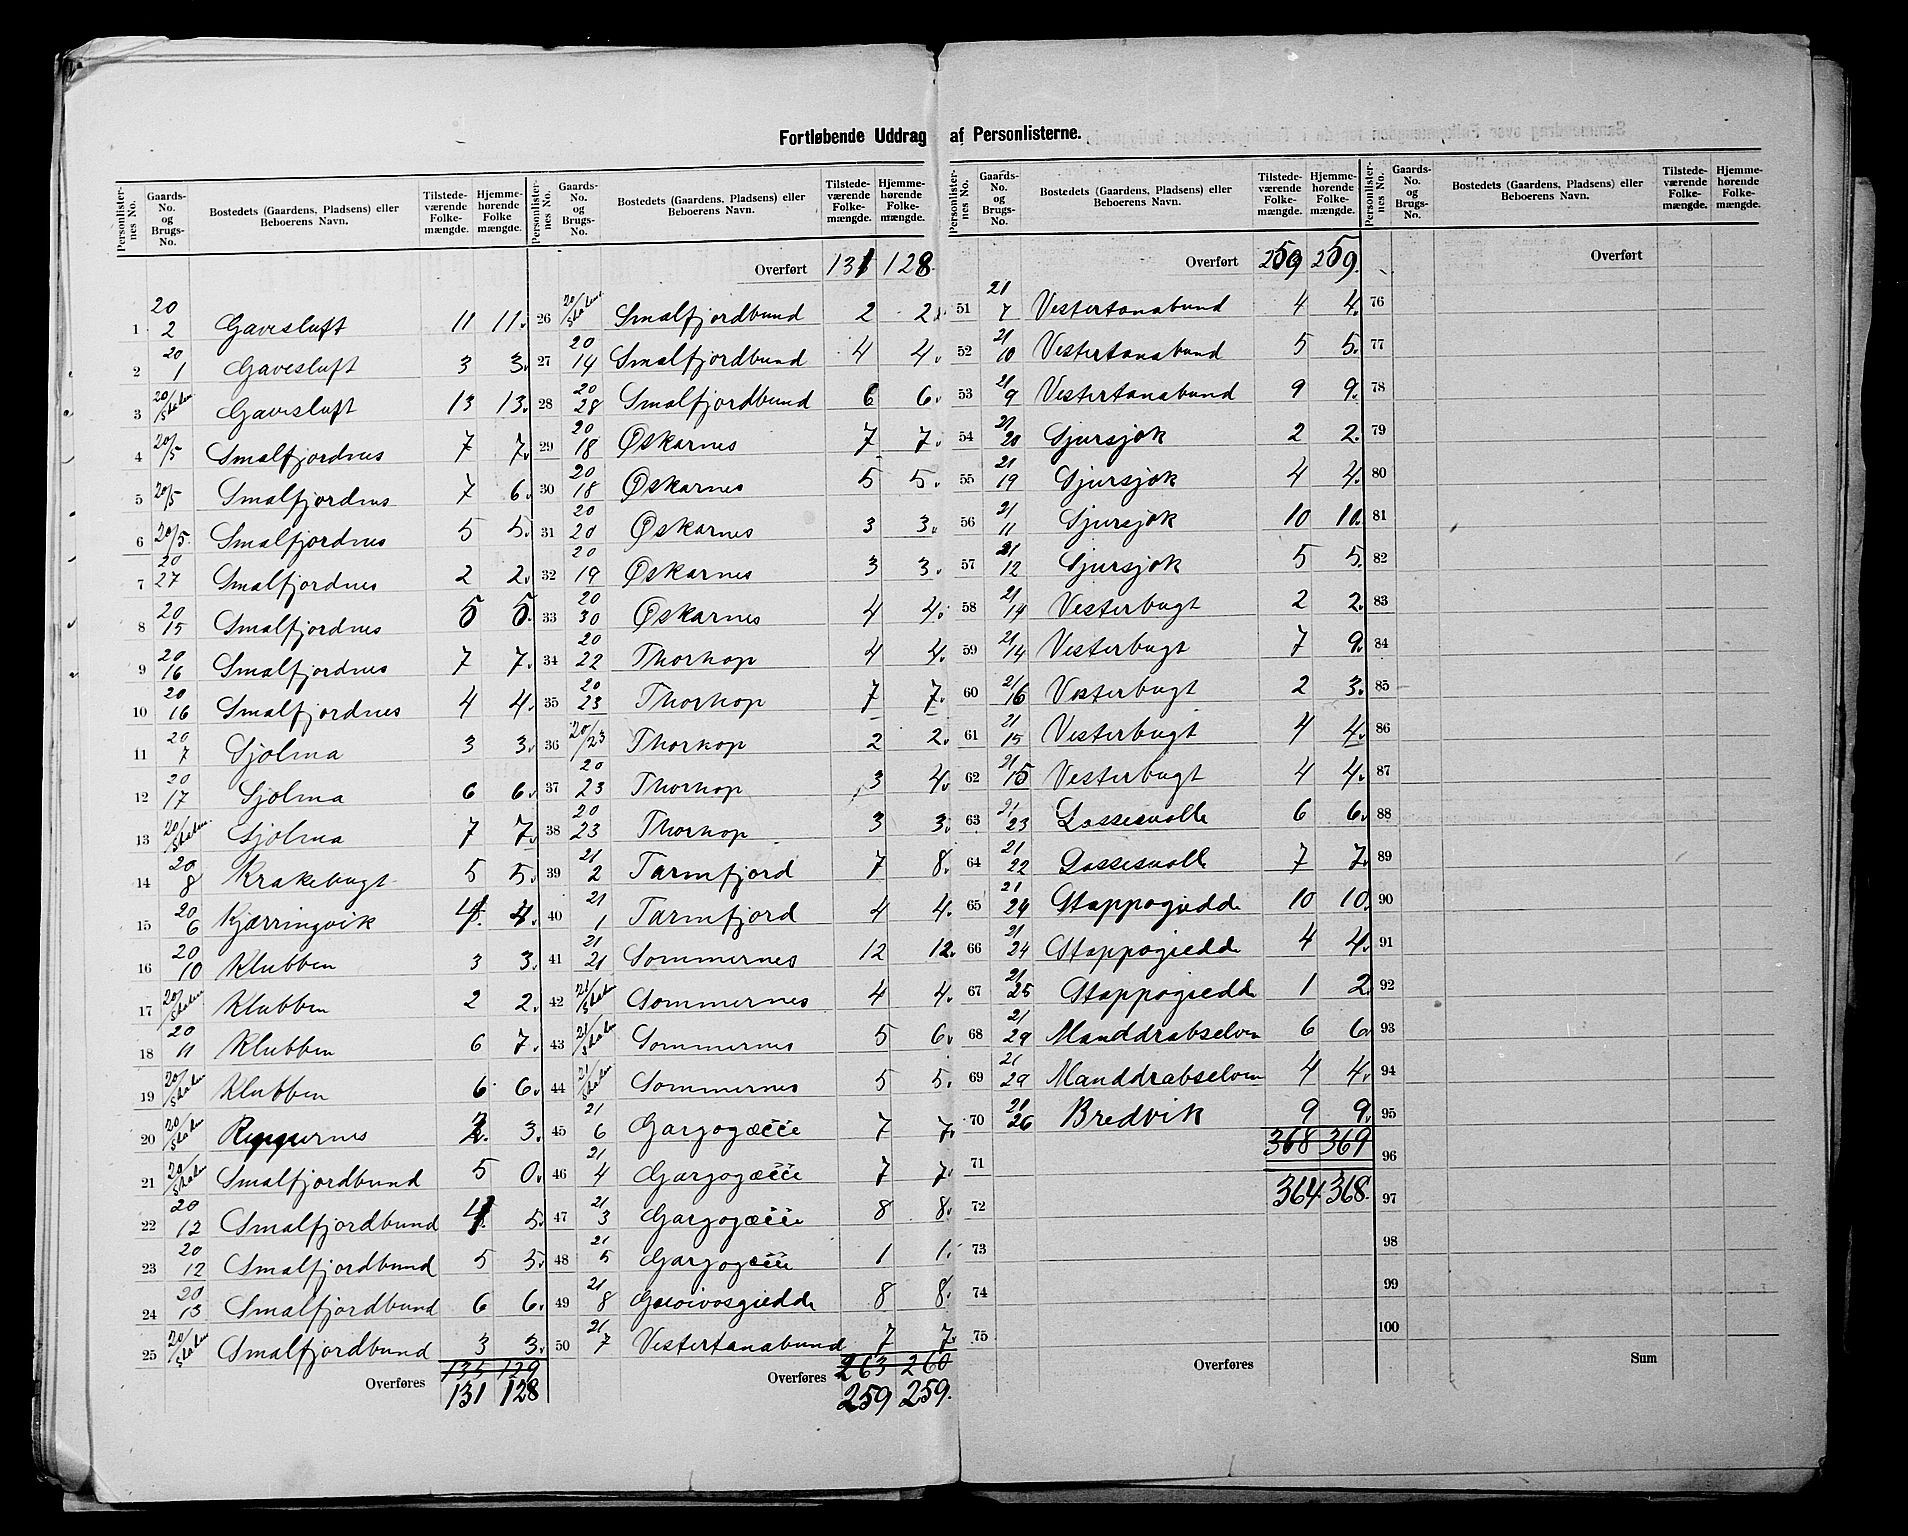 Fortløbende Uddrag af Personlisterne.
Personlisternes No. | Gaards-No. og Brugs-No. | Bostedets (Gaardens, Pladsens) eller Beboerens Navn. | Tilstedeværende Folkemængde. | Hjemmehørende Folkemængde.
1 20/2 Gavesluft 11 11
2 20/1 Gavesluft 3 3
3 20/Staten Gavesluft 13 13
4 20/5 Smalfjordnes 7 7
5 20/5 Smalfjordnes 7 6
6 20/5 Smalfjordnes 5 5
7 20/27 Smalfjordnes 2 2
8 20/15 Smalfjordnes 5 5
9 20/16 Smalfjordnes 7 7
10 20/16 Smalfjordnes 4 4
11 20/7 Sjolma 3 3
12 20/17 Sjolma 6 6
13 20/Staten Sjolma 7 7
14 20/8 Krakebugt 5 5
15 20/6 Kjærringvik 4 4
16 20/10 Klubben 3 3
17 20/Staten Klubben 2 2
18 20/11 Klubben 6 7
19 20/Staten Klubben 6 6
20 20/Staten 3
21 20/Staten Smalfjordbund 5 0
22 20/12 Smalfjordbund 4 5
23 20/12 Smalfjordbund 5 5
24 20/13 Smalfjordbund 6 6
25 20/Staten Smalfjordbund 3 3
135 129
Overføres 131 128
Overført 131 128
26 20/Staten Smalfjordbund 2 2
27 20/14 Smalfjordbund 4 4
28 20/28 Smalfjordbund 6 6
29 20/18 Øskarnes 7 7
30 20/18 Øskarnes 5 5
31 20/20 Øskarnes 3 3
32 20/19 Øskarnes 3 3
33 20/30 Øskarnes 4 4
34 20/22 Thorhop 4 4
35 20/23 Thorhop 7 7
36 20/23 Thorhop 2 2
37 20/23 Thorhop 3 4
38 20/23 Thorhop 3 3
39 21/2 Tarmfjord 7 8
40 21/1 Tarmfjord 4 4
41 21/21 Sommernes 12 12
42 21/Staten Sommernes 4 4
43 21/Staten Sommernes 5 6
44 21/Staten Sommernes 5 5
45 21/6 Gargogæčče 7 7
46 21/4 Gargogæčče 7 7
47 21/3 Gargogæčče 8 8
48 21/5 Gargogæčče 1 1
49 21/8 8 8
50 21/7 Vestertanabund 7 7
263 260
Overføres 259 259
Overført 259 259
51 21/7 Vestertanabund 4 4
52 21/10 Vestertanabund 5 5
53 21/9 Vestertanabund 9 9
54 21/20 Sjursjok 2 2
55 21/19 Sjursjok 4 4
56 21/11 Sjursjok 10 10
57 21/12 Sjursjok 5 5
58 21/14 Vesterbugt 2 2
59 21/14 Vesterbugt 7 9
60 21/16 Vesterbugt 2 3
61 21/15 Vesterbugt 4 4
62 21/15 Vesterbugt 4 4
63 21/23 Lassesvolle 6 6
64 21/22 Lassesvolle 7 7
65 21/24 Stappogiedde 10 10
66 21/24 Stappogiedde 4 4
67 21/25 Stappogiedde 1 2
68 21/29 Manddrabselven 6 6
69 21/29 Manddrabselven 4 4
70 21/26 Bredvik 9 9
368 369
71
364 368
72
73
74
75
Overføres
Overført
76
77
78
79
80
81
82
83
84
85
86
87
88
89
90
91
92
93
94
95
96
97
98
99
100
Sum